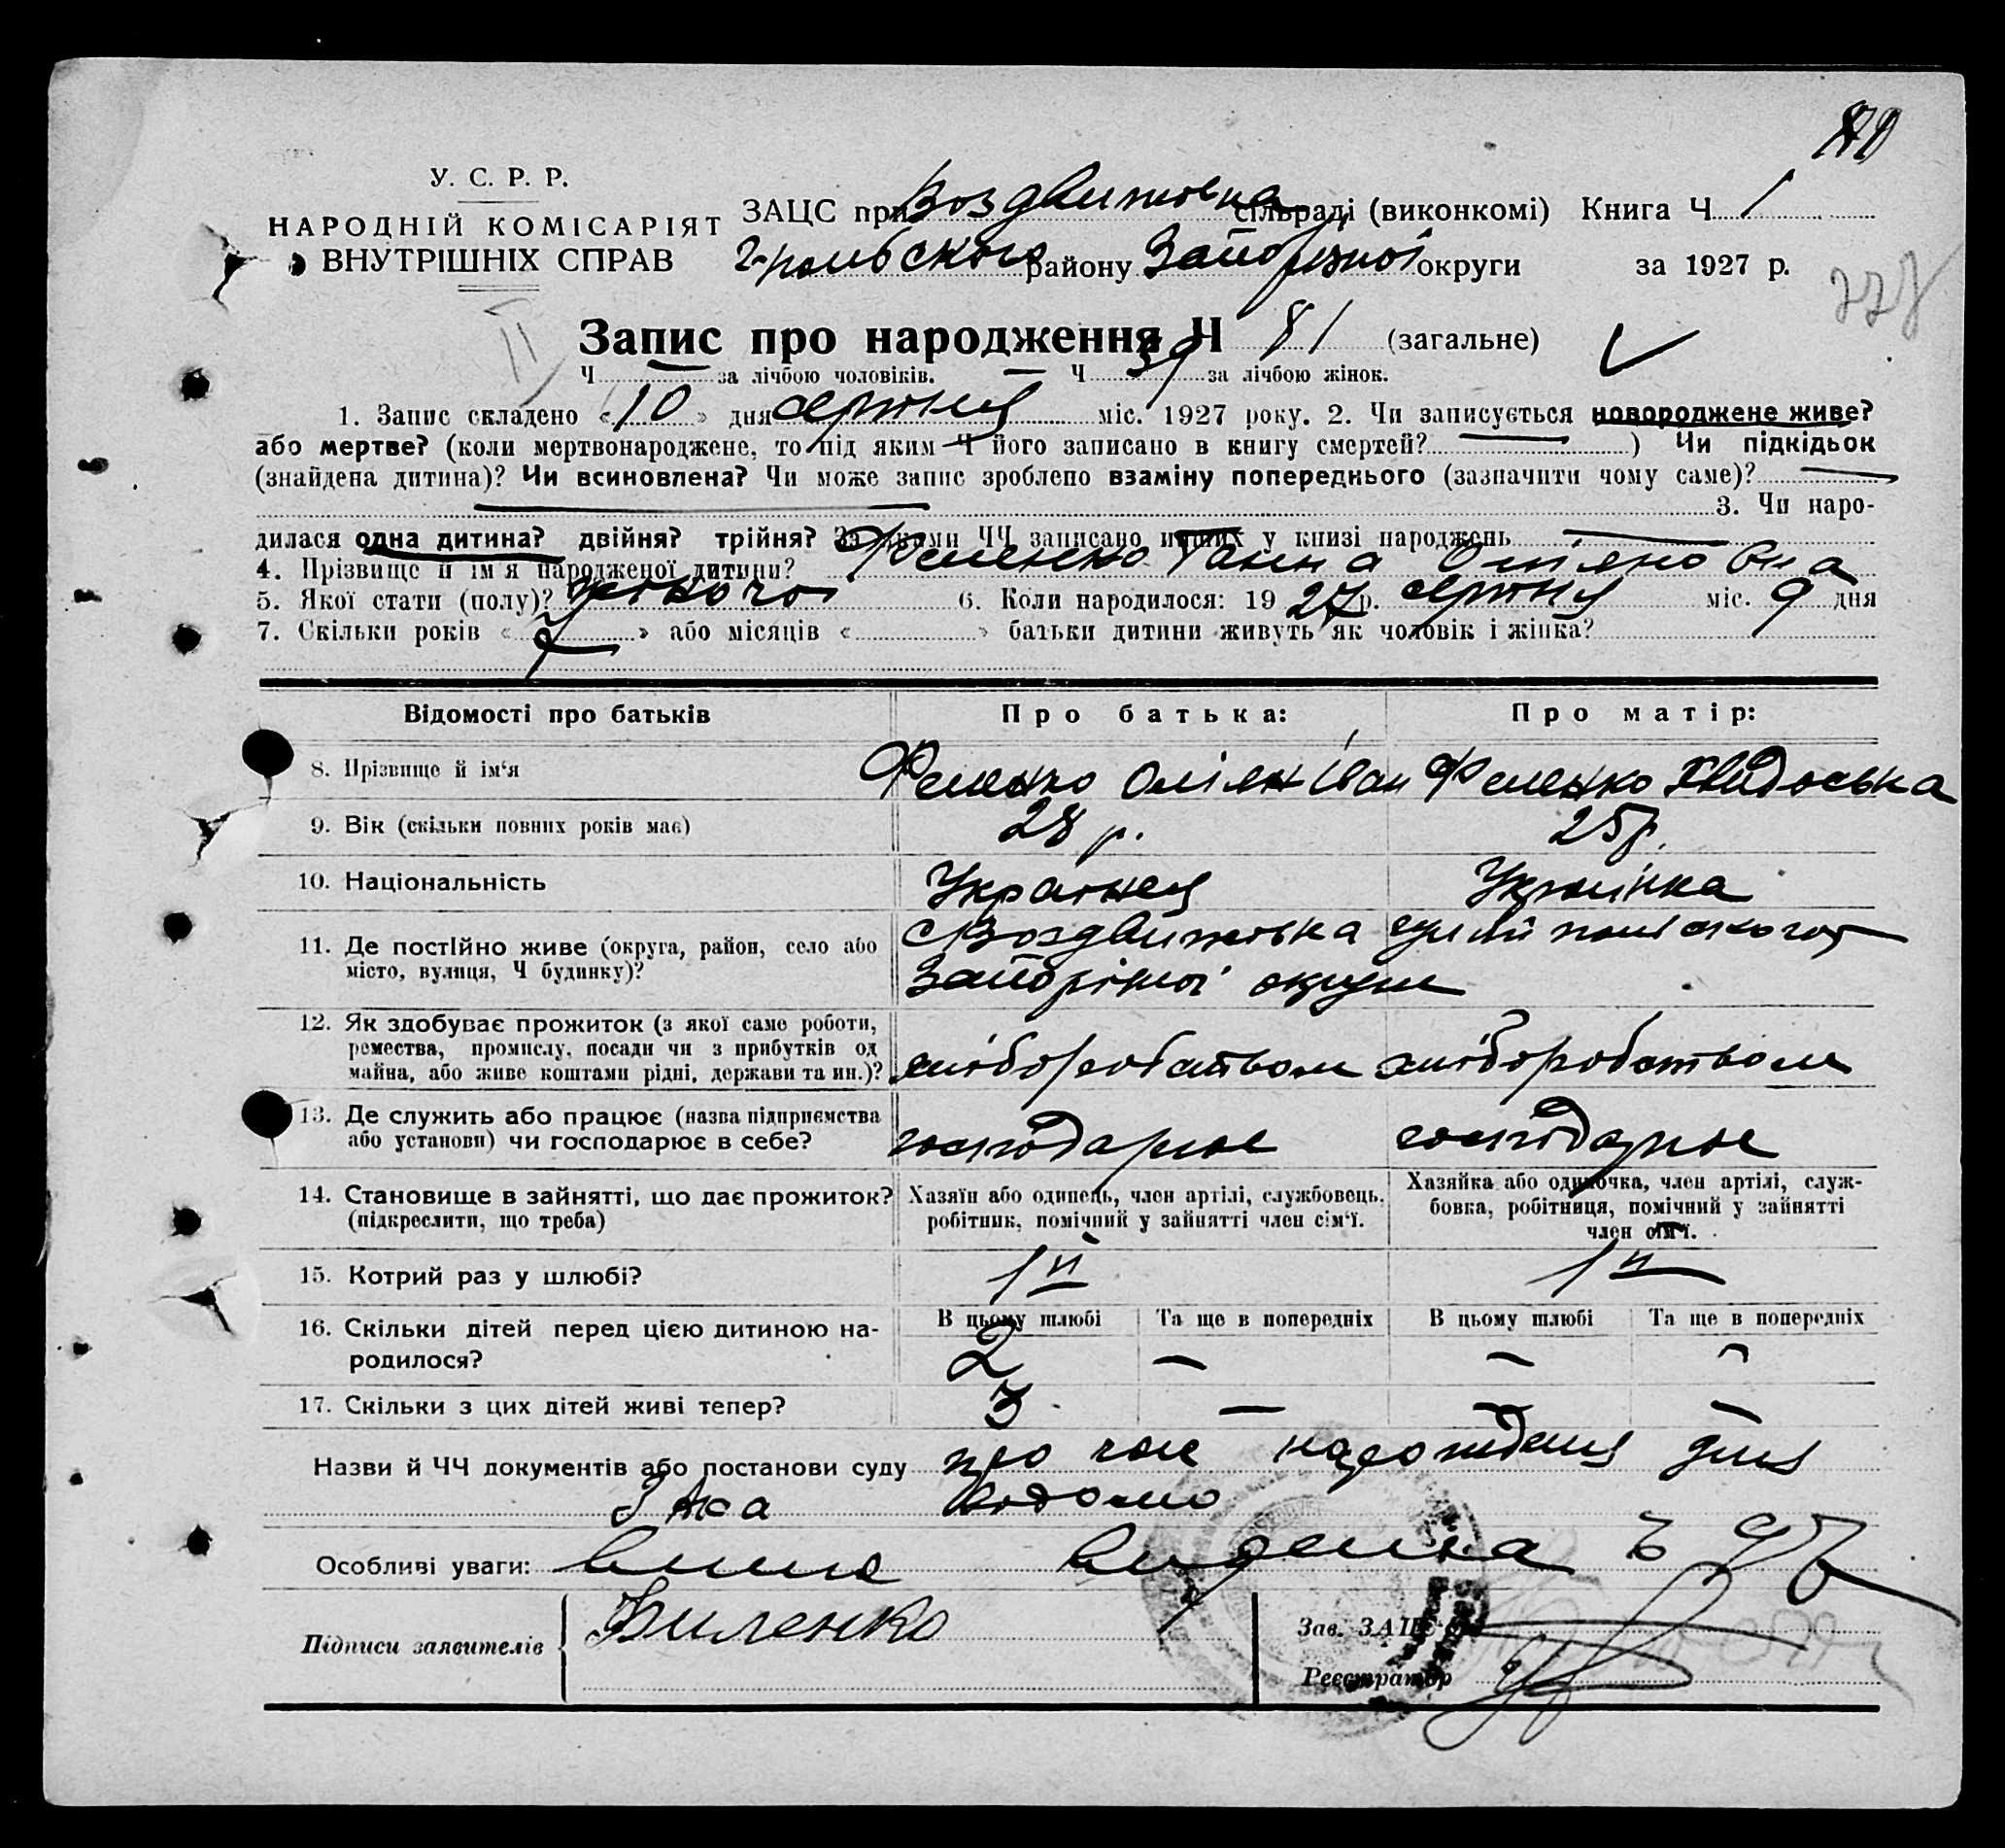 У. С. Р. Р.
НАРОДНІЙ КОМІСАРІЯТ
ВНУТРІШНІХ СПРАВ
ЗАЦС при Воздвижовка сільраді (виконкомі) Книга Ч. 1
району Запоріжної округи за 1927 р.
Запис про народження Ч 81 (загальне)
Ч — за лічбою чоловіків. — Ч 39 за лічбою жінок.
1. Запис складено «10» дня серпня міс. 1927 року. 2. Чи записується новороджене живе?
або мертве? (коли мертвонароджене, то під яким Ч його записано в книгу смертей? — ) Чи підкідьок
(знайдена дитина)? Чи всиновлена? Чи може запис зроблено взаміну попереднього (зазначити чому саме)? —
— 3. Чи наро-
дилася одна дитина? двійня? трійня? За якими ЧЧ записано инших у книзі народжень —
4. Прізвище й ім'я народженої дитини? Феленко Ганна Оміляновна
5. Якої стати (полу)? жіночої 6. Коли народилося: 1927 р. серпня міс. 9 дня
7. Скільки років « 7 » або місяців « » батьки дитини живуть як чоловік і жінка?
Відомості про батьків
Про батька:
Про матір:
8. Прізвище й ім'я
Феленко Омілян Іван
Феленко Хвидоська
9. Вік (скільки повних років має)
28 р.
25 р.
10. Національність
Українец
Українка
11. Де постійно живе (округа, район, село або
місто, вулиця, Ч будинку)?
с Воздвижовка
Запоріжної округи
12. Як здобуває прожиток (з якої саме роботи,
ремества, промислу, посади чи з прибутків од
майна, або живе коштами рідні, держави та ин.)?
хліборобством
хліборобством
13. Де служить або працює (назва підприємства
або установи) чи господарює в себе?
господарює
господарює
14. Становище в зайнятті, що дає прожиток?
(підкреслити, що треба)
Хазяїн або одинець, член артілі, службовець,
робітник, помічний у зайнятті член сім'ї.
Хазяйка або одиночка, член артілі, служ-
бовка, робітниця, помічний у зайнятті
член сім'ї.
15. Котрий раз у шлюбі?
1й
1й
16. Скільки дітей перед цією дитиною на-
родилося?
В цьому шлюбі
Та ще в попередніх
В цьому шлюбі
Та ще в попередніх
2 — — —
17. Скільки з цих дітей живі тепер?
3 — — —
Назви й ЧЧ документів або постанови суду про час народження
Особливі уваги:
Підписи заявителів
Зав. ЗАЦС'ом
Реєстратор